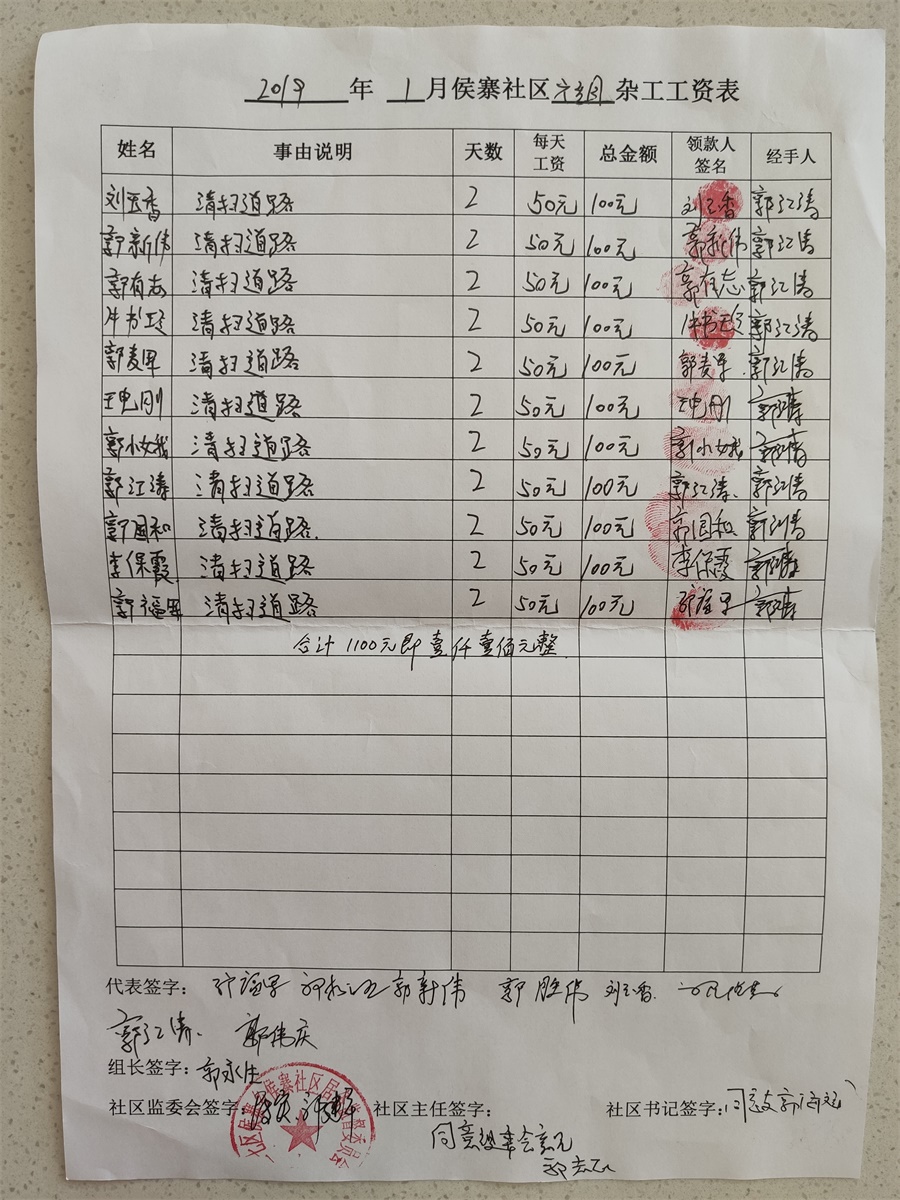 2019 年 1 月侯寨社区 杂工工资表
姓名 事由说明 天数 每天工资 总金额 领款人签名 经手人
刘玉香 清扫道路 2 50元 100元 刘玉香 郭江涛
郭新伟 清扫道路 2 50元 100元 郭新伟 郭江涛
郭有志 清扫道路 2 50元 100元 郭有志 郭江涛
牛书 清扫道路 2 50元 100元 牛书 郭江涛
郭麦军 清扫道路 2 50元 100元 郭麦军 郭江涛
王电刚 清扫道路 2 50元 100元 王电刚 郭江涛
郭小女我 清扫道路 2 50元 100元 郭小女我 郭江涛
郭江涛 清扫道路 2 50元 100元 郭江涛 郭江涛
郭国和 清扫道路 2 50元 100元 郭国和 郭江涛
李保霞 清扫道路 2 50元 100元 李保霞 郭江涛
郭福军 清扫道路 2 50元 100元 郭江涛
合计1100元即壹仟壹佰元整
代表签字： 郭新伟 郭胜伟 刘玉香
郭江涛 郭伟庆
组长签字：郭永生
社区监委会签字： 社区主任签字： 社区书记签字：同意
同意组委会意见